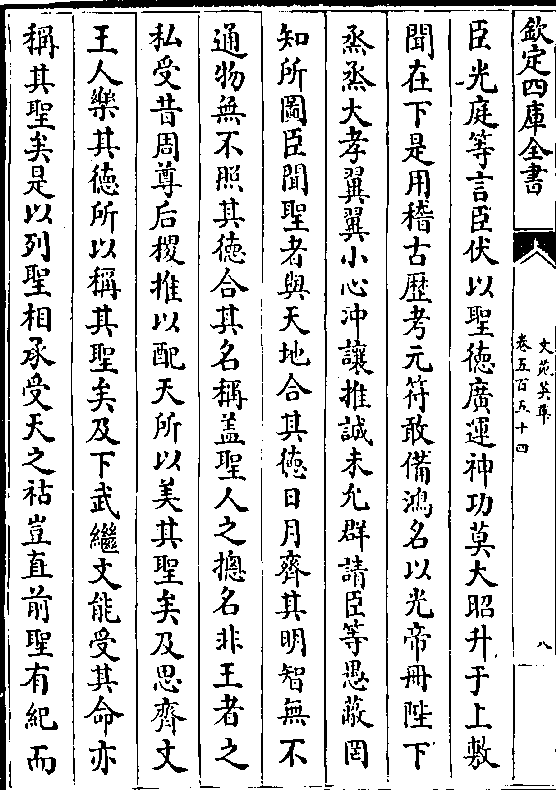 欽定四庫全書
文苑英華
卷五百五十四
八
臣光庭等言臣伏以聖徳廣運神功莫大昭升于上敷
聞在下是用稽古歴考元符敢備鴻名以光帝冊陛下
烝烝大孝翼翼小心沖讓推誠未允群請臣等愚蔽罔
知所圖臣聞聖者與天地合其徳日月齊其明智無不
通物無不照其徳合其名稱盖聖人之摠名非王者之
私受昔周尊后稷推以配天所以美其聖矣及思齊文
王人樂其徳所以稱其聖矣及下武繼文能受其命亦
稱其聖矣是以列聖相承受天之祜豈直前聖有紀而